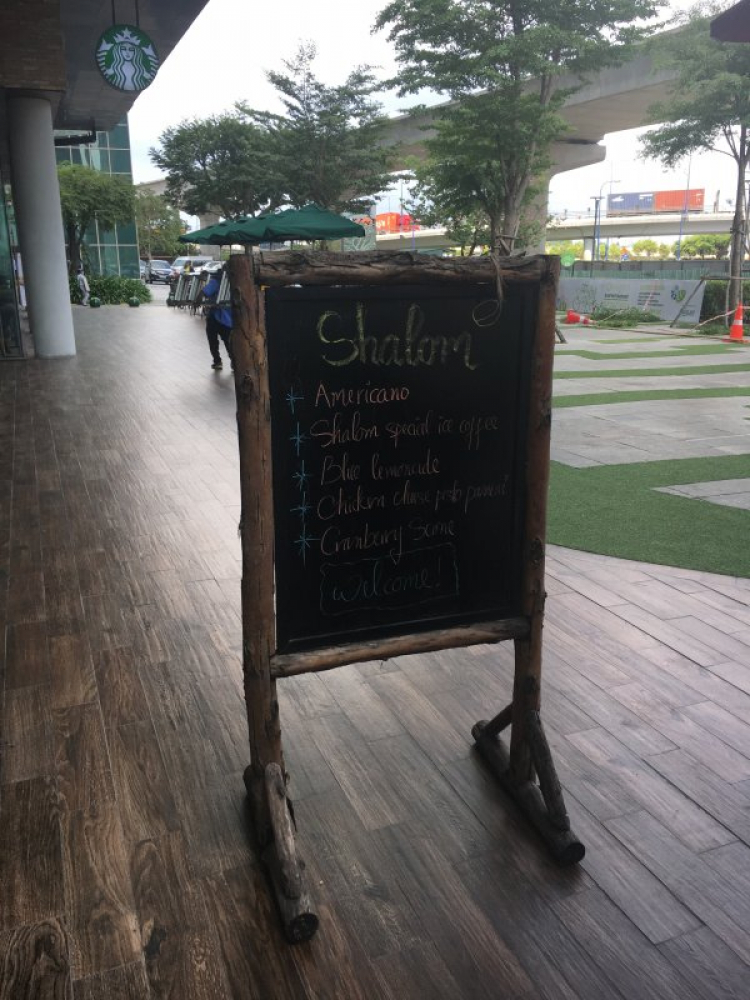 Shalom
Americano
Shalom special ice coffee
Blue lemonade
Chicken cheese pesto panini
Cranberry Scone
Welcome!